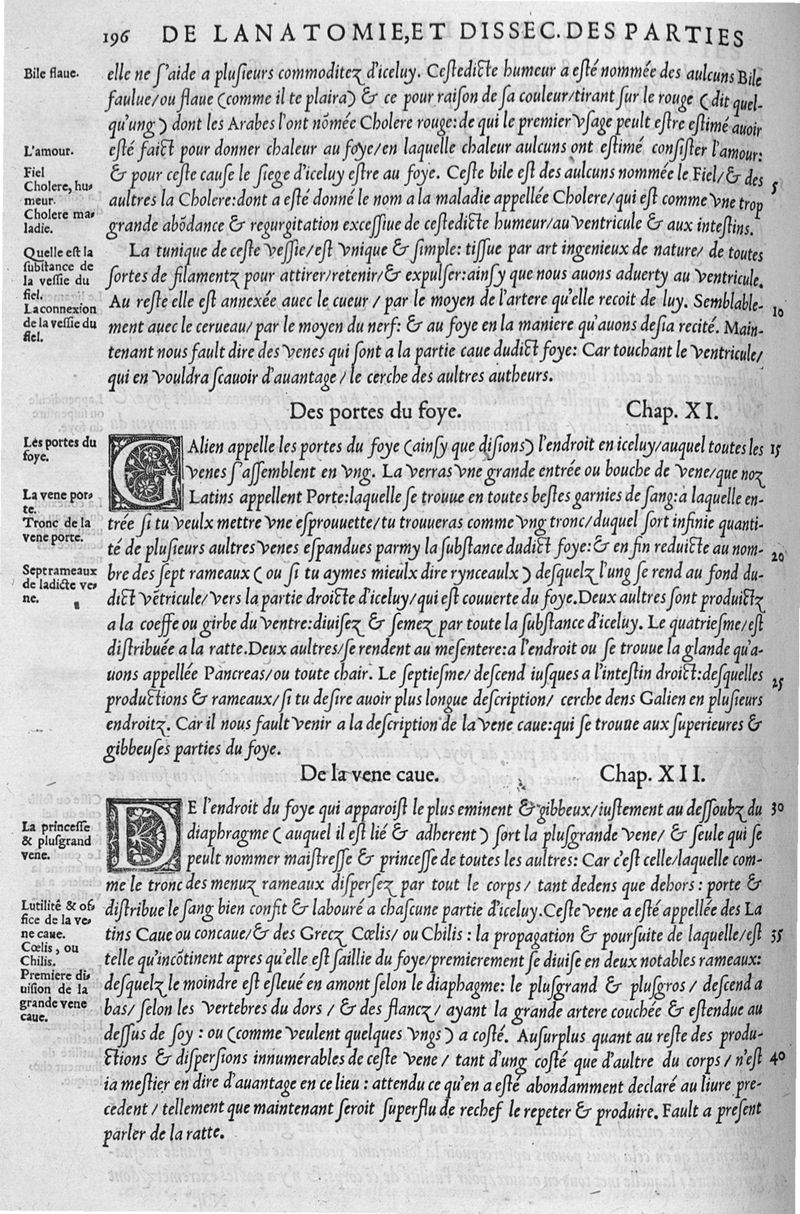 196 DE LANATOMIE, ET DISSEC. DES PARTIES
Bile flaue.
elle ne s'aide a plusieurs commoditez d'iceluy. Cestedicte humeur a esté nommée des aulcuns Bile
faulue/ou flaue (comme il te plaira) & ce pour raison de sa couleur/tirant sur le rouge (dit quel-
qu'ung) dont les Arabes l'ont nõmée Cholere rouge: de qui le premier vsage peult estre estimé auoir
L'amour.
esté faict pour donner chaleur au foye/en laquelle chaleur aulcuns ont estimé consister l'amour:
Fiel
Cholere, hu-
meur.
& pour ceste cause le siege d'iceluy estre au foye. Ceste bile est des aulcuns nommée le Fiel/& des
5
Cholere ma-
ladie.
aultres la Cholere: dont a esté donné le nom a la maladie appellée Cholere/qui est comme vne trop
grande abõdance & regurgitation excessiue de cestedicte humeur/au ventricule & aux intestins.
Quelle est la
substance de
la vessie du
fiel.
La tunique de ceste vessie/est vnique & simple: tissue par art ingenieux de nature/ de toutes
sortes de filamentz pour attirer/retenir/& expulser: ainsy que nous auons aduerty au ventricule.
La connexion
de la vessie du
fiel.
Au reste elle est annexée auec le cueur / par le moyen de l'artere qu'elle recoit de luy. Semblable-
10
ment auec le cerueau/par le moyen du nerf: & au foye en la maniere qu'auons desia recité. Main-
tenant nous fault dire des venes qui sont a la partie caue dudict foye: Car touchant le ventricule/
qui en vouldra scauoir d'auantage / le cerche des aultres autheurs.
Des portes du foye. Chap. XI.
Les portes du
foye.
GAlien appelle les portes du foye (ainsy que disions) l'endroit en iceluy/auquel toutes les
15
venes s'assemblent en vng. La verras vne grande entrée ou bouche de vene/que noz
La vene por-
te.
Latins appellent Porte: laquelle se trouue en toutes bestes garnies de sang: a laquelle en-
Tronc de la
vene porte.
trée si tu veulx mettre vne esprouuette/tu trouueras comme vng tronc/duquel sort infinie quanti-
té de plusieurs aultres venes espandues parmy la substance dudict foye: & en fin reduicte au nom-
20
Sept rameaux
de ladicte ve-
ne.
bre des sept rameaux (ou si tu aymes mieulx dire rynceaulx) desquelz l'ung se rend au fond du-
dict vẽtricule/vers la partie droicte d'iceluy/qui est couuerte du foye. Deux aultres sont produictz
a la coeffe ou girbe du ventre: diuisez & semez par toute la substance d'iceluy. Le quatriesme/est
distribuée a la ratte. Deux aultres/se rendent au mesentere: a l'endroit ou se trouue la glande qu'a-
uons appellée Pancreas/ou toute chair. Le septiesme/ descend iusques a l'intestin droict: desquelles
25
productions & rameaux/si tu desire auoir plus longue description/ cerche dens Galien en plusieurs
endroitz. Car il nous fault venir a la description de la vene caue: qui se trouue aux superieures &
gibbeuses parties du foye.
De la vene caue. Chap. XII.
DE l'endroit du foye qui apparoist le plus eminent & gibbeux/iustement au dessoubz du
30
La princesse
& plusgrand
vene.
diaphragme (auquel il est lié & adherent) sort la plusgrande vene/ & seule qui se
peult nommer maistresse & princesse de toutes les aultres: Car c'est celle/laquelle com-
me le tronc des menuz rameaux dispersez par tout le corps / tant dedens que dehors: porte &
Lutilité & of-
fice de la ve-
ne caue.
distribue le sang bien confit & labouré a chascune partie d'iceluy. Ceste vene a esté appellée des La
Cœlis, ou
Chilis.
tins Caue ou concaue/& des Grecz Cœlis/ou Chilis: la propagation & poursuite de laquelle/est
35
telle qu'incõtinent apres qu'elle est saillie du foye/premierement se diuise en deux notables rameaux:
Premiere di-
uision de la
grande vene
caue.
desquelz le moindre est esleué en amont selon le diaphagme: le plusgrand & plusgros / descend a
bas/ selon les vertebres du dors / & des flancz / ayant la grande artere couchée & estendue au
dessus de soy: ou (comme veulent quelques vngs) a costé. Au surplus quant au reste des produ-
ctions & dispersions innumerables de ceste vene / tant d'ung costé que d'aultre du corps / n'est
40
ia mestier en dire d'auantage en ce lieu: attendu ce qu'en a esté abondamment declaré au liure pre-
cedent / tellement que maintenant seroit superflu de rechef le repeter & produire. Fault a present
parler de la ratte.